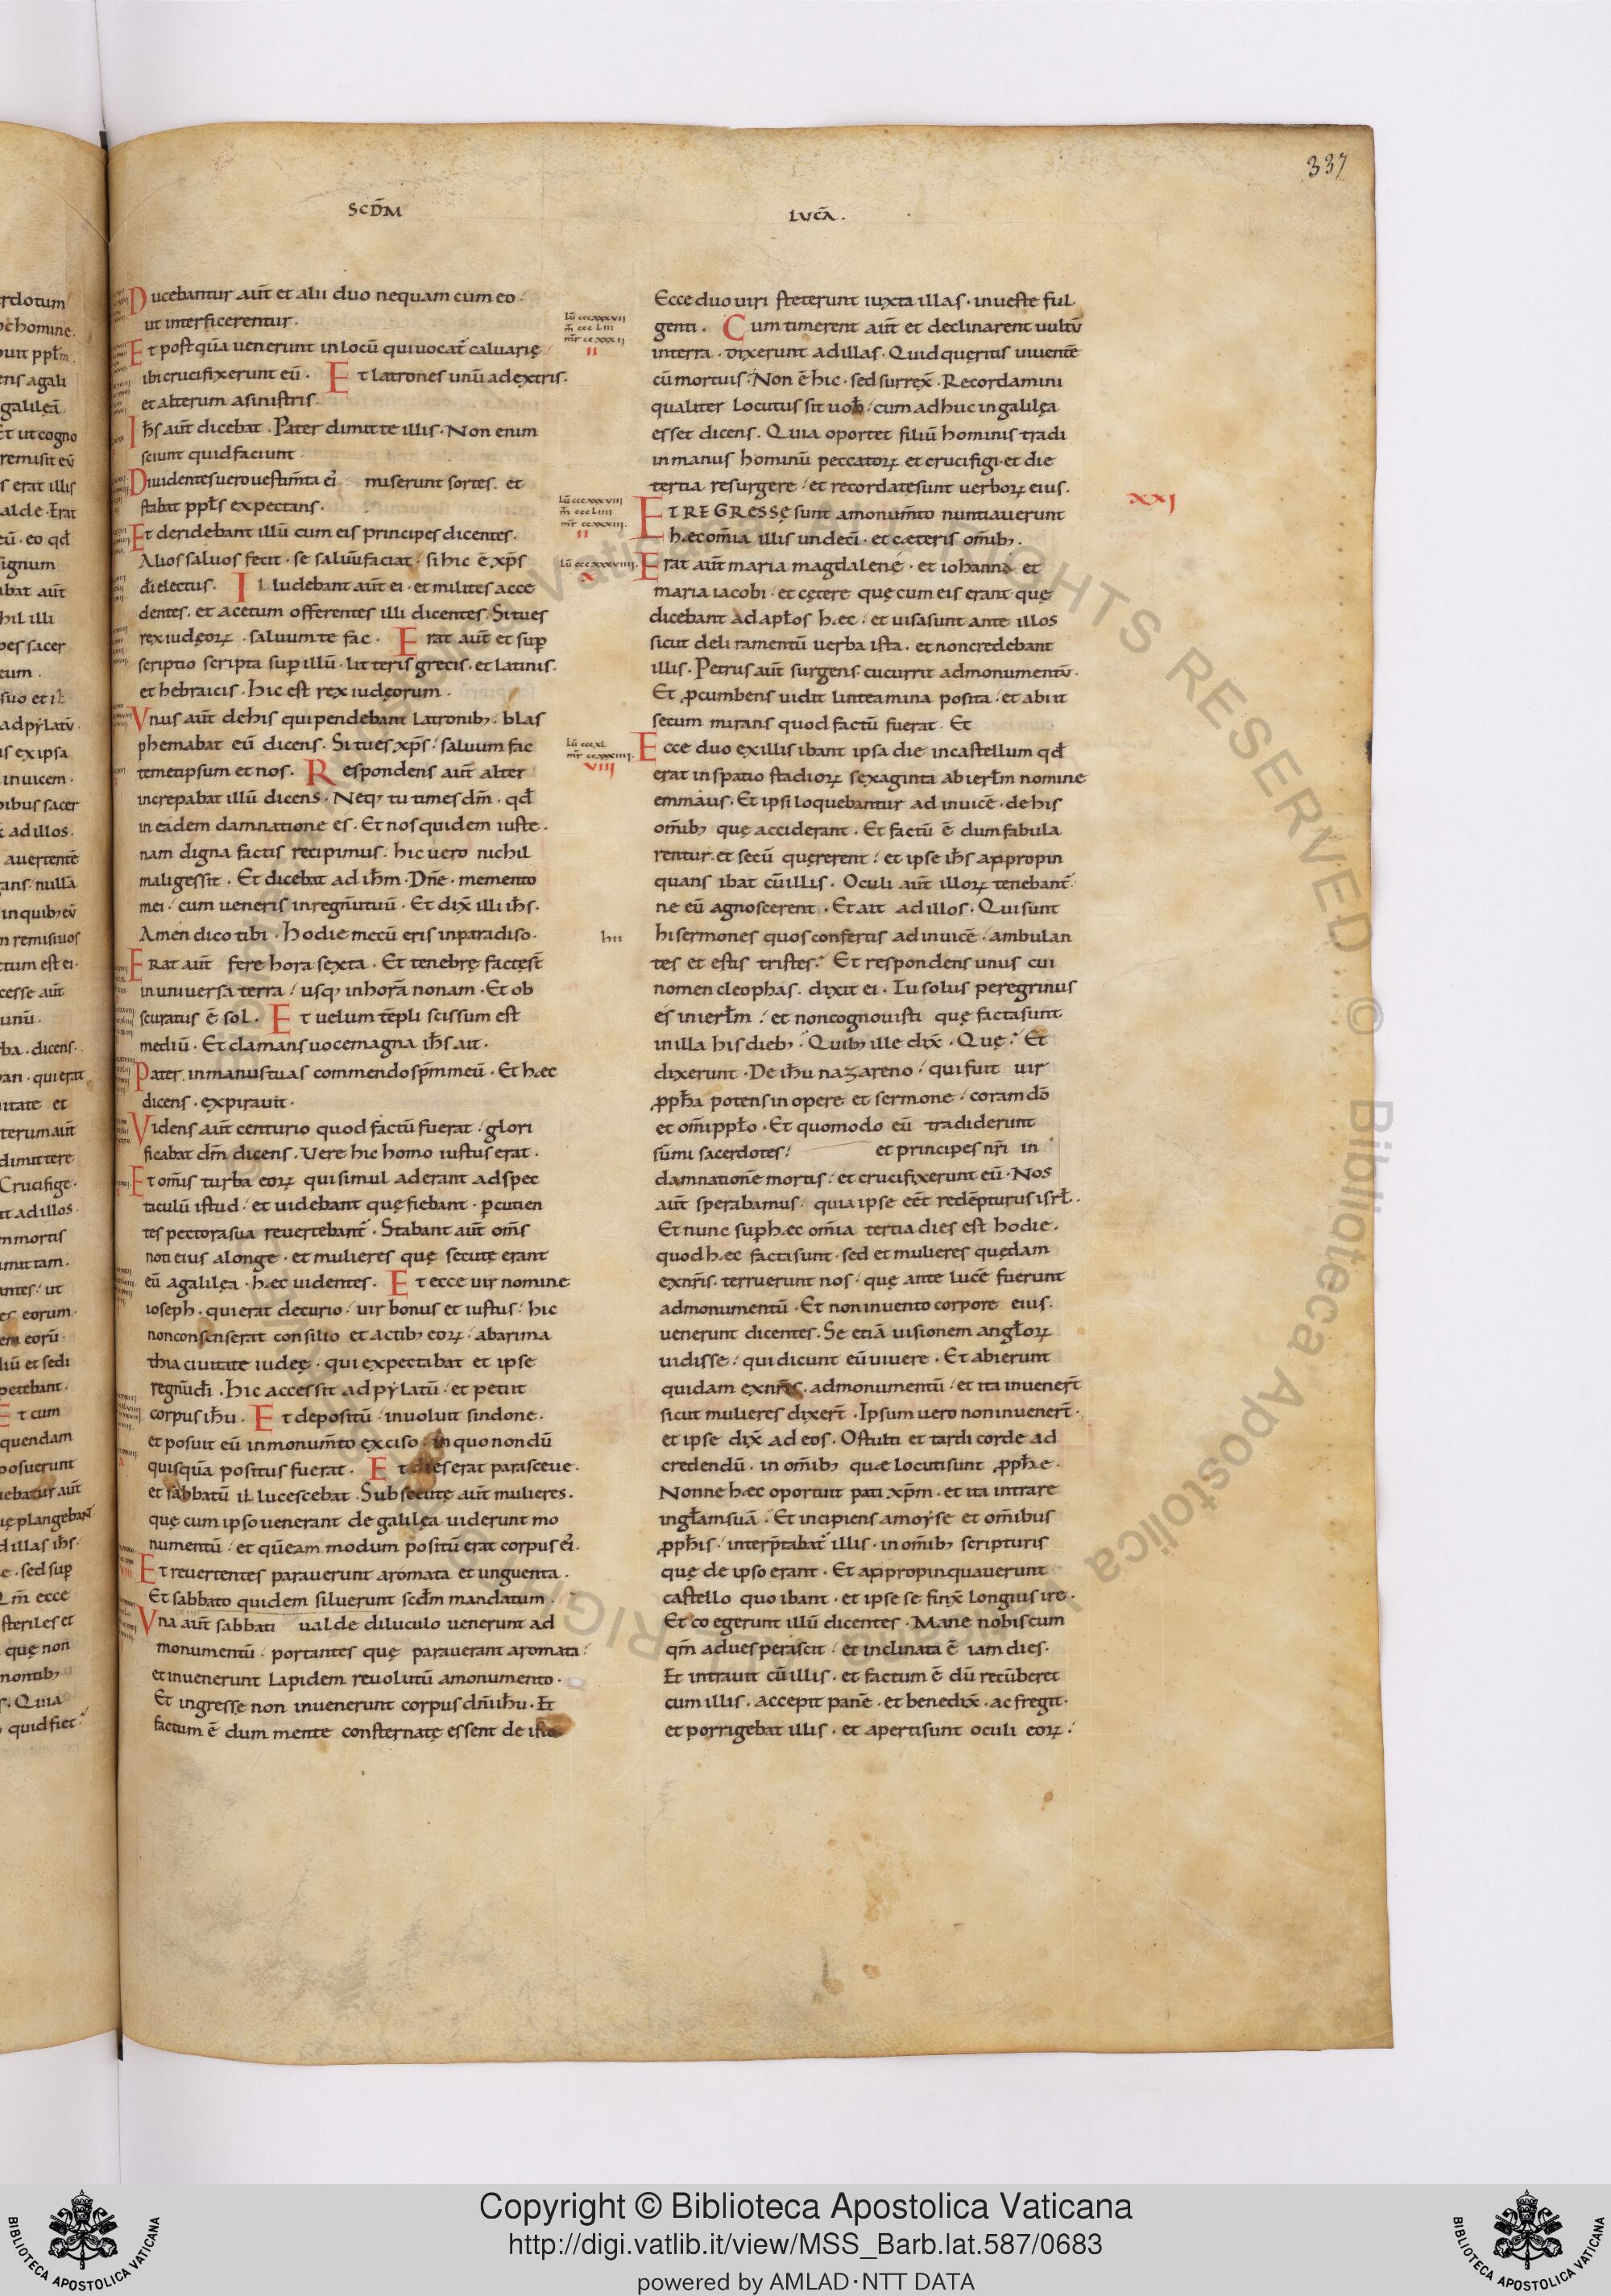 337
SCD̄M
LVCĀ.
Ducebantur aut̄ et alii duo nequam cum eo.
ut interficerentur.
Et postquā uenerunt in locū qui uocat̄ caluarię
ibi crucifixerunt eū. Et latrones unū a dextris.
et alterum a sinistris.
Ih̄s aut̄ dicebat. Pater dimitte illis. Non enim
sciunt quid faciunt.
Diuidentes uero uestim̄ta ei miserunt sortes. et
stabat pp̄ls expectans.
Et deridebant illū cum eis principes dicentes.
Alios saluos fecit. se saluū faciat. si hic ē xp̄s
dī electus. Illudebant aut̄ ei. et milites acce
dentes. et acetum offerentes illi dicentes. Si tu es
rex iudęoꝝ. saluum te fac. Erat aut̄ et sup̄
scriptio scripta sup̄ illū. litteris grecis. et latinis.
et hebraicis. hic est rex iudęorum.
Vnus aut̄ de his qui pendebant latronib;. blas
phemabat eū dicens. Si tu es xp̄s. saluum fac
temetipsum et nos. Respondens aut̄ alter
increpabat illū dicens. Neq; tu times dm̄. qd̄
in eadem damnatione es. Et nos quidem iuste.
nam digna factis recipimus. hic uero nichil
mali gessit. Et dicebat ad ih̄m. Dn̄e. memento
mei. cum ueneris in regnū tuū. Et dix̄ illi ih̄s.
Amen dico tibi. hodie mecū eris in paradiso.
Erat aut̄ fere hora sexta. Et tenebrę factę st̄
in uniuersa terra. usq; in horā nonam. Et ob
scuratus ē sol. Et uelum tēpli scissum est
mediū. Et clamans uoce magna ih̄s ait.
Pater. in manus tuas commendo sp̄m meū. Et hæc
dicens. expirauit.
Videns aut̄ centurio quod factū fuerat. glori
ficabat dm̄ dicens. Vere hic homo iustus erat.
Et om̄is turba eoꝝ qui simul aderant ad spec
taculū istud. et uidebant quę fiebant. ꝑcutien
tes pectora sua reuertebant̄. Stabant aut̄ om̄s
noti eius a longe. et mulieres quę secutę erant
eū a galilęa. hæc uidentes. Et ecce uir nomine
ioseph. qui erat decurio. uir bonus et iustus. hic
non consenserat consilio et actib; eoꝝ. ab arima
thia ciuitate iudeę. qui expectabat et ipse
regnū dī. hic accessit ad pylatū. et petiit
corpus ih̄u. Et depositū. inuoluit sindone.
et posuit eū in monum̄to exciso. in quo nondū
quisquā positus fuerat. Et dies erat parasceue.
et sabbatū illucescebat. Subsecutę aut̄ mulieres.
quę cum ipso uenerant de galilęa uiderunt mo
numentū. et quēam modum positū erat corpus ei.
Et reuertentes parauerunt aromata et unguenta.
Et sabbato quidem siluerunt scd̄m mandatum.
Vna aut̄ sabbati ualde diluculo uenerunt ad
monumentū. portantes quę parauerant aromata.
et inuenerunt lapidem reuolutū a monumento.
Et ingresse non inuenerunt corpus dn̄i ih̄u. Et
factum ē dum mente consternatę essent de isto
Ecce duo uiri steterunt iuxta illas. in ueste ful
genti. Cum timerent aut̄ et declinarent uultū
in terra. dixerunt ad illas. Quid quęritis uiuentē
cū mortuis. Non ē hic. sed surrex̄. Recordamini
qualiter locutus sit uob̄. cum adhuc in galilęa
esset dicens. Quia oportet filiū hominis tradi
in manus hominū peccatoꝝ et crucifigi. et die
tertia resurgere. et recordatę sunt uerboꝝ eius.
XXI
Et REGRESSę sunt a monum̄to nuntiauerunt
hæc om̄ia illis undeci. et cæteris om̄ib;.
Erat aut̄ maria magdalene. et iohanna. et
maria iacobi. et cętere quę cum eis erant. quę
dicebant ad apl̄os hæc. et uisa sunt ante illos
sicut deliramentū uerba ista. et non credebant
illis. Petrus aut̄ surgens cucurrit ad monumentū.
Et ꝓcumbens uidit linteamina posita. et abiit
secum mirans quod factū fuerat. Et
Ecce duo ex illis ibant ipsa die in castellum qd̄
erat in spatio stadioꝝ sexaginta ab ierl̄m nomine
emmaus. Et ipsi loquebantur ad inuicē. de his
om̄ib; quę acciderant. Et factū ē dum fabula
rentur. et secū quęrerent. et ipse ih̄s appropin
quans ibat cū illis. Oculi aut̄ illoꝝ tenebant̄.
ne eū agnoscerent. Et ait ad illos. Qui sunt
hi sermones quos confertis ad inuicē. ambulan
tes et estis tristes. Et respondens unus cui
nomen cleophas. dixit ei. Tu solus peregrinus
es in ierl̄m. et non cognouisti quę facta sunt
in illa his dieb;. Quib; ille dix̄. Quę. Et
dixerunt. De ih̄u nazareno. qui fuit uir
ꝓph̄a potens in opere et sermone. coram dō
et om̄i pp̄lo. Et quomodo eū tradiderunt
sūmi sacerdotes. et principes nr̄i in
damnationē mortis. et crucifixerunt eū. Nos
aut̄ sperabamus. quia ipse eēt redēpturus isrl̄.
Et nunc sup̄ hæc om̄ia tertia dies est hodie.
quod hæc facta sunt. sed et mulieres quędam
ex nr̄is. terruerunt nos. quę ante lucē fuerunt
ad monumentū. Et non inuento corpore eius.
uenerunt dicentes. Se etiā uisionem angl̄oꝝ
uidisse. qui dicunt eū uiuere. Et abierunt
quidam ex nr̄is. ad monumentū. et ita inuener̄t
sicut mulieres dixer̄t. Ipsum uero non inuener̄t.
et ipse dix̄ ad eos. O stulti et tardi corde ad
credendū. in om̄ib; quæ locuti sunt ꝓph̄e.
Nonne hæc oportuit pati xp̄m. et ita intrare
in gl̄am suā. Et incipiens a moyse et om̄ibus
ꝓph̄is. interp̄tabat̄ illis. in om̄ib; scripturis
quę de ipso erant. Et appropinquauerunt
castello quo ibant. et ipse se finx̄ longius ire.
Et coegerunt illū dicentes. Mane nobiscum
qm̄ aduesperascit. et inclinata ē iam dies.
Et intrauit cū illis. et factum ē dū recūberet
cum illis. accepit panē. et benedix̄. ac fregit.
et porrigebat illis. et aperti sunt oculi eoꝝ.
Copyright © Biblioteca Apostolica Vaticana
http://digi.vatlib.it/view/MSS_Barb.lat.587/0683
powered by AMLAD·NTT DATA
BIBLIOTECA APOSTOLICA VATICANA
BIBLIOTECA APOSTOLICA VATICANA